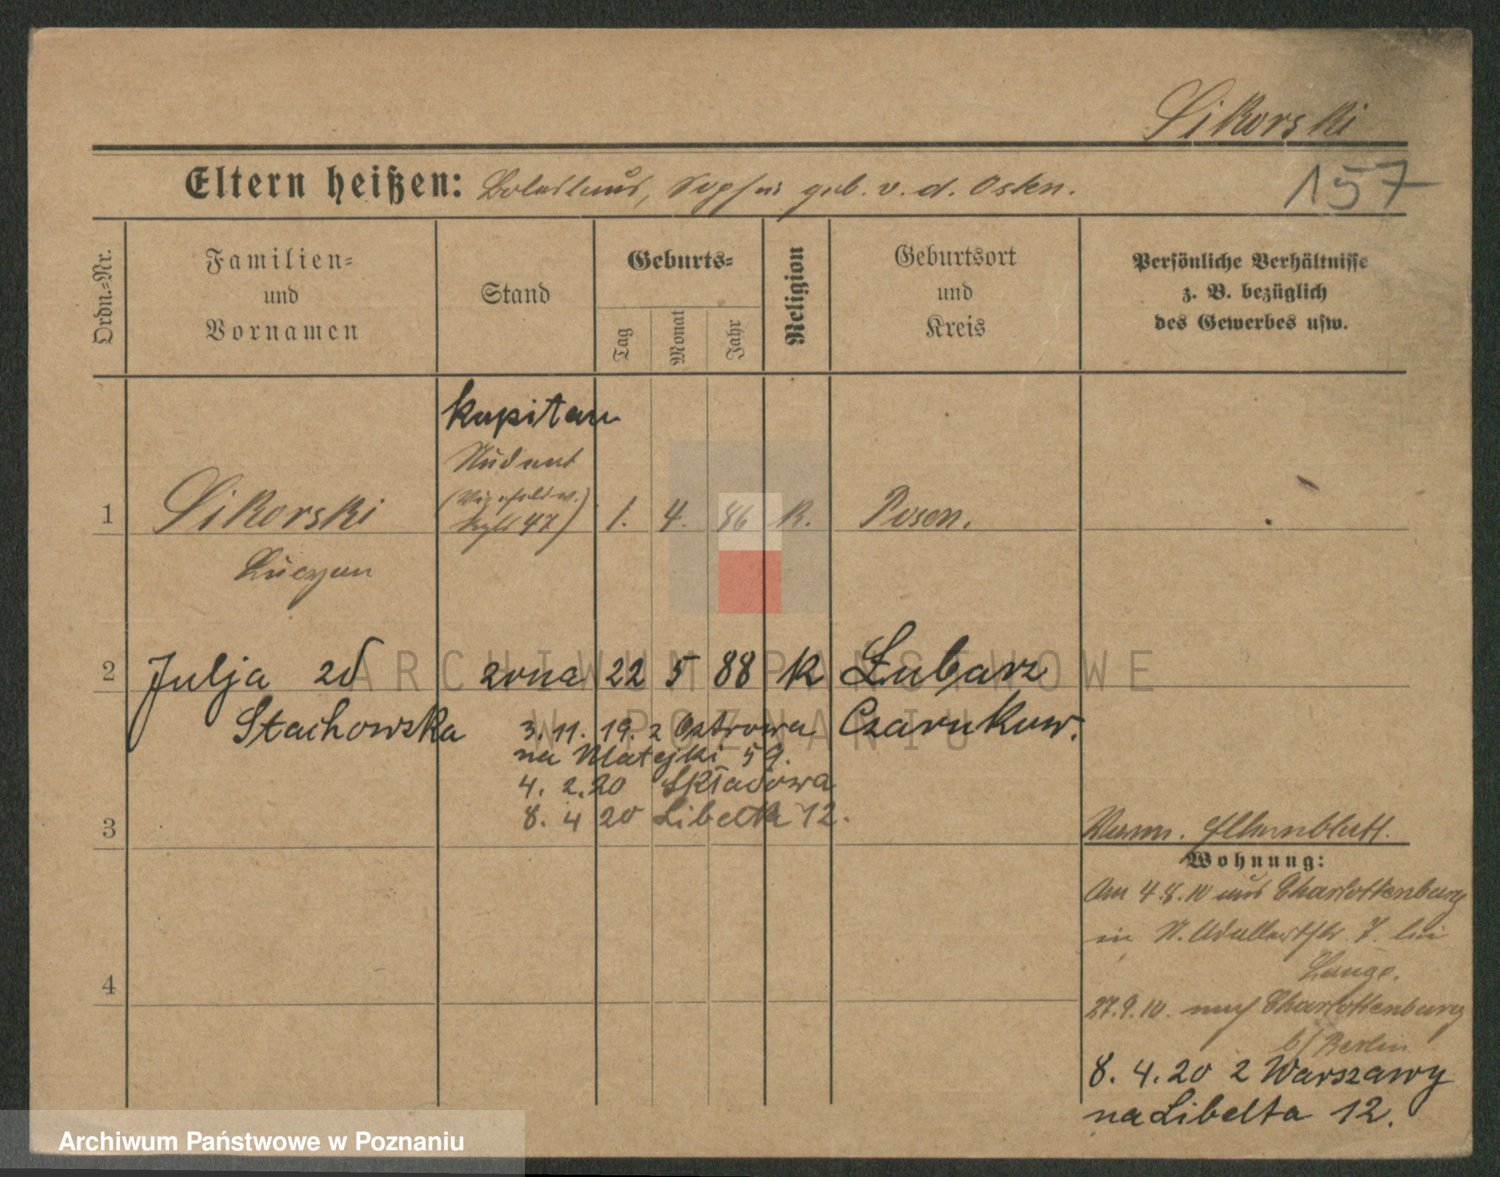 Sikorski
157
Eltern heißen: Boleslaus, Sophie geb. v. d. Osten.
Ordn.-Nr.
Familien-
und
Vornamen
Stand
Geburts-
Tag
Monat
Jahr
Religion
Geburtsort
und
Kreis
Persönliche Verhältnisse
z. B. bezüglich
des Gewerbes usw.
kapitan
Student
1 Sikorski 47) 1. 4. 86 k. Posen.
Lucyan
2 Julja zd żona 22 5 88 k Lubasz
Stachowska Czarnkow.
3. 11. 19. z Ostrowa
na Matejki 59.
4. 2. 20 Składowa
8. 4 20 Libelta 12.
3
Elternblatt.
Wohnung:
Am 4.8.10 aus Charlottenburg
in 7. bei
Lange.
27.9.10. nach Charlottenburg
b/Berlin
4
8. 4. 20 z Warszawy
na Libelta 12.
ARCHIWUM PAŃSTWOWE
W POZNANIU
Archiwum Państwowe w Poznaniu